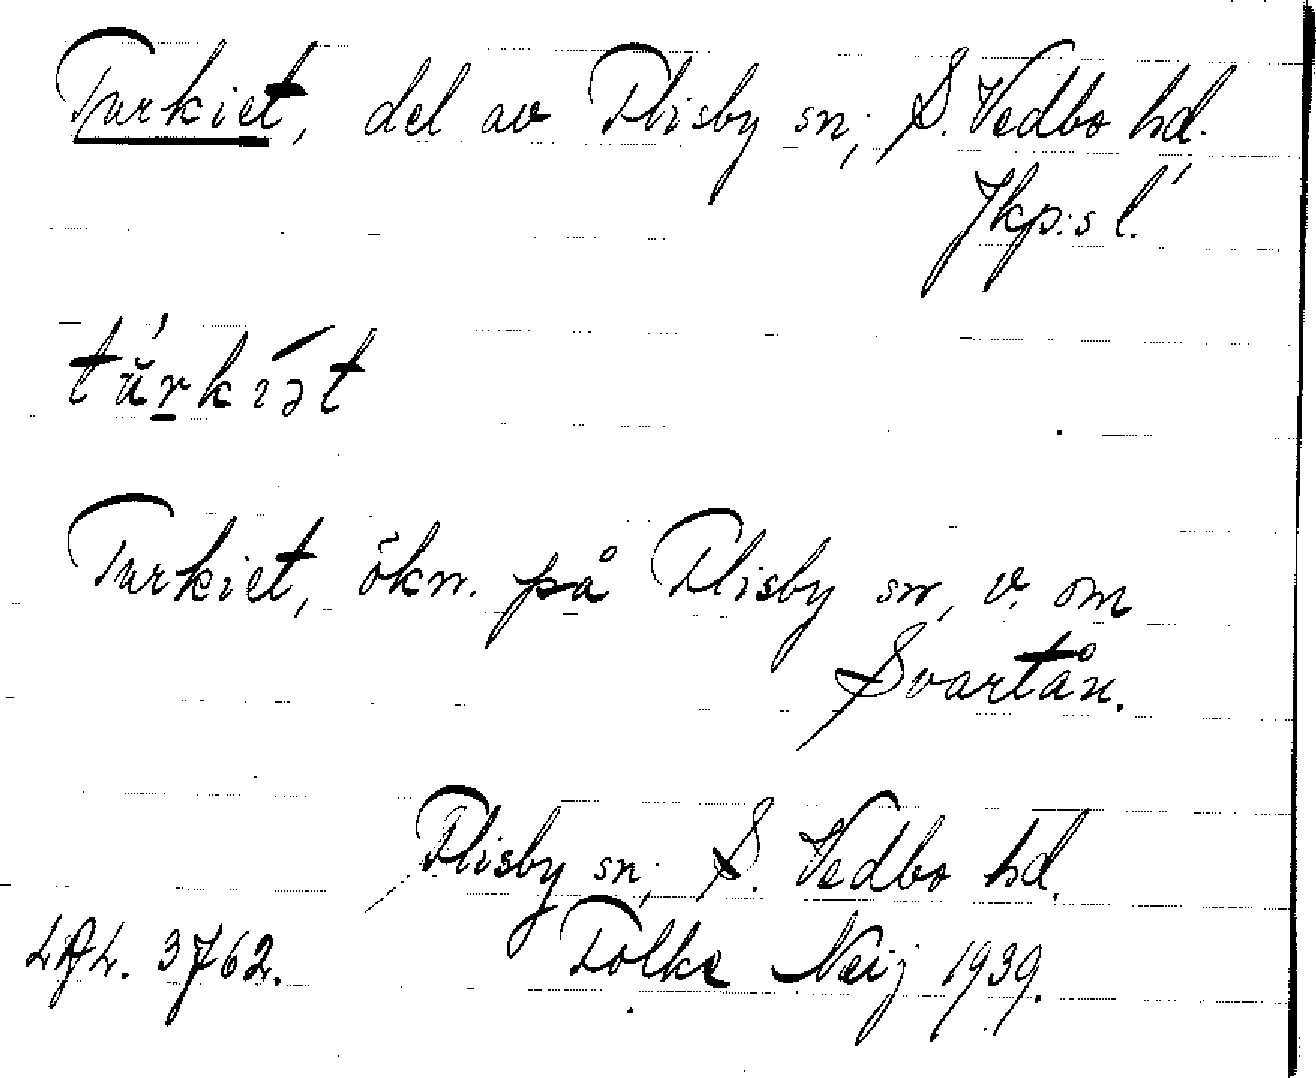 Turkiet, del av Flisby sn, S. Vedbo hd.
Jkp:s l.
tŭrkíət
Turkiet, ökn. på Flisby sn, v. om
Svartån.
Flisby sn, S. Vedbo hd.
LAL. 3762. Folke Neij 1939.